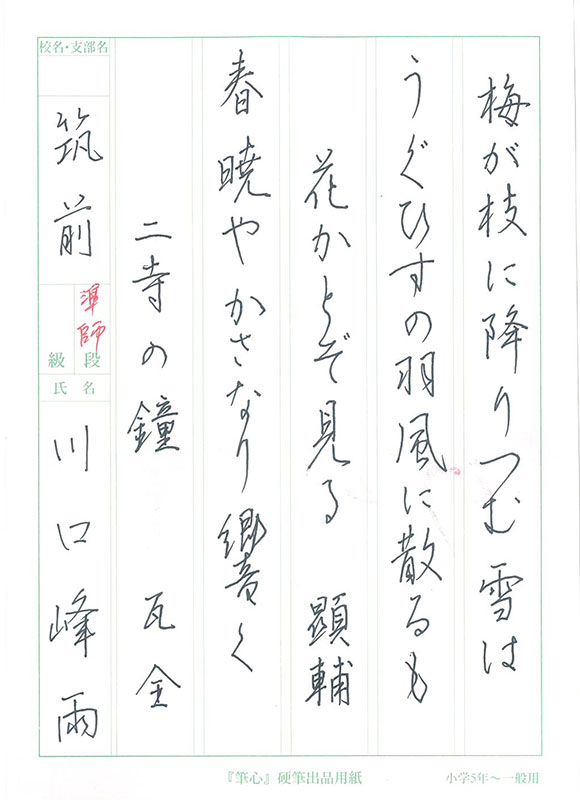 梅が枝に降りつむ雪は
うぐひすの羽風に散るも
花かとぞ見る 顕輔
春暁やかさなり響く
二寺の鐘 瓦全
校名・支部名
筑前
準師
級 段
氏名
川口峰雨
『筆心』硬筆出品用紙
小学5年～一般用